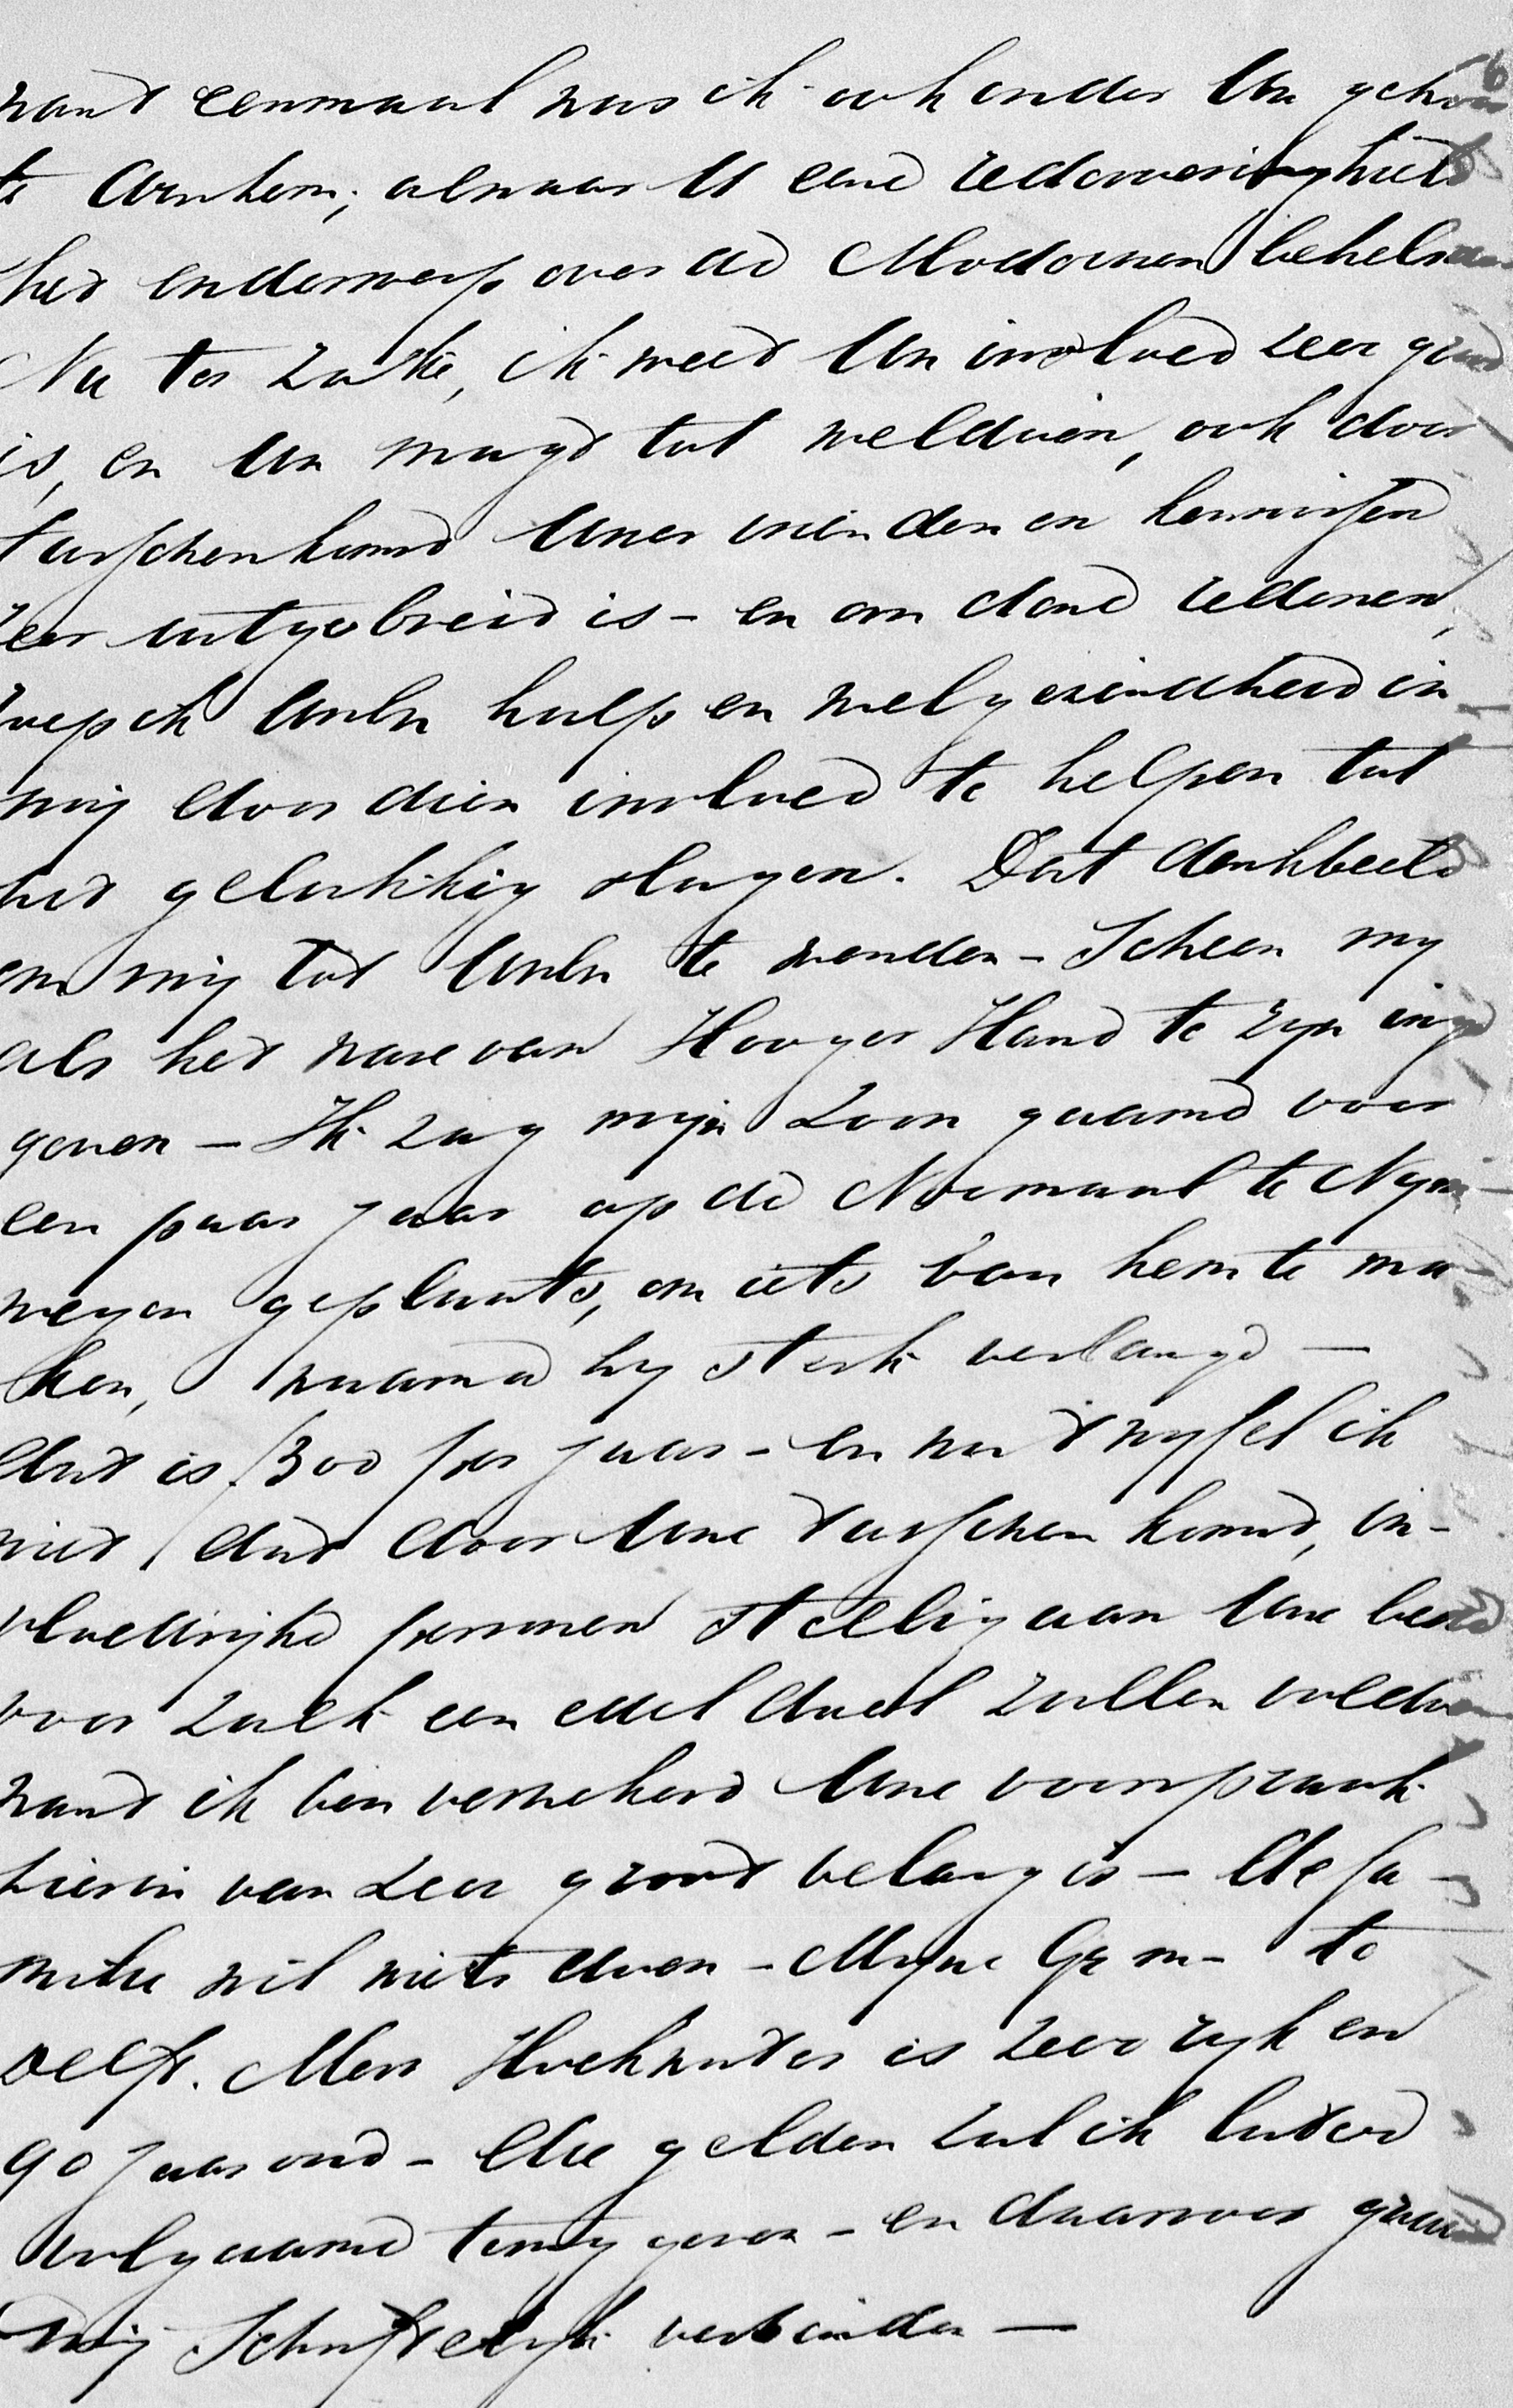 want eenmaal was ik ook onder Uw gehoor
te Arnhem; alwaar U eene redevoering hield
het onderwerp over de Modernen behelsde
Nu ter zake, ik weet Uw invloed zeer groot
is, en Uw magt tot weldoen, ook door
tusschenkomst Uwer vrienden en kennissen
zeer uitgebreid is - en om deze redenen,
roep ik UwEw hulp en welgezindheid in
mij door dien invloed te helpen tot
het gelukkig slagen. Dat denkbeeld
om mij tot UwEw te wenden - Scheen my
als het ware van Hooger Hand te zyn inge
geven - Ik zag mijn Zoon gaarne voor
een paar jaar op de Normaal te Nym-
wegen geplaats, om iets van hem te ma-
ken, waarna hy sterk verlangd -
dat is f 300 per jaar - en nu twyfel ik
niet, dat door Uwe tusschen komst, in-
vloedrijke personen stellig aan Uwe bede
voor zulk een edel doel zullen voldoen
want ik ben verzekerd Uwe voorspraak
hierin van zeer groot belang is - De fa-
milie wil niets doen - Myne Gr m- te
Delft. Mevr Hoekwater is zeer ryk en
90 jaar oud - Die gelden zal ik later
volgaarne terug geven - en daarvoor gaarne
mij Schriftelijk verbinden -